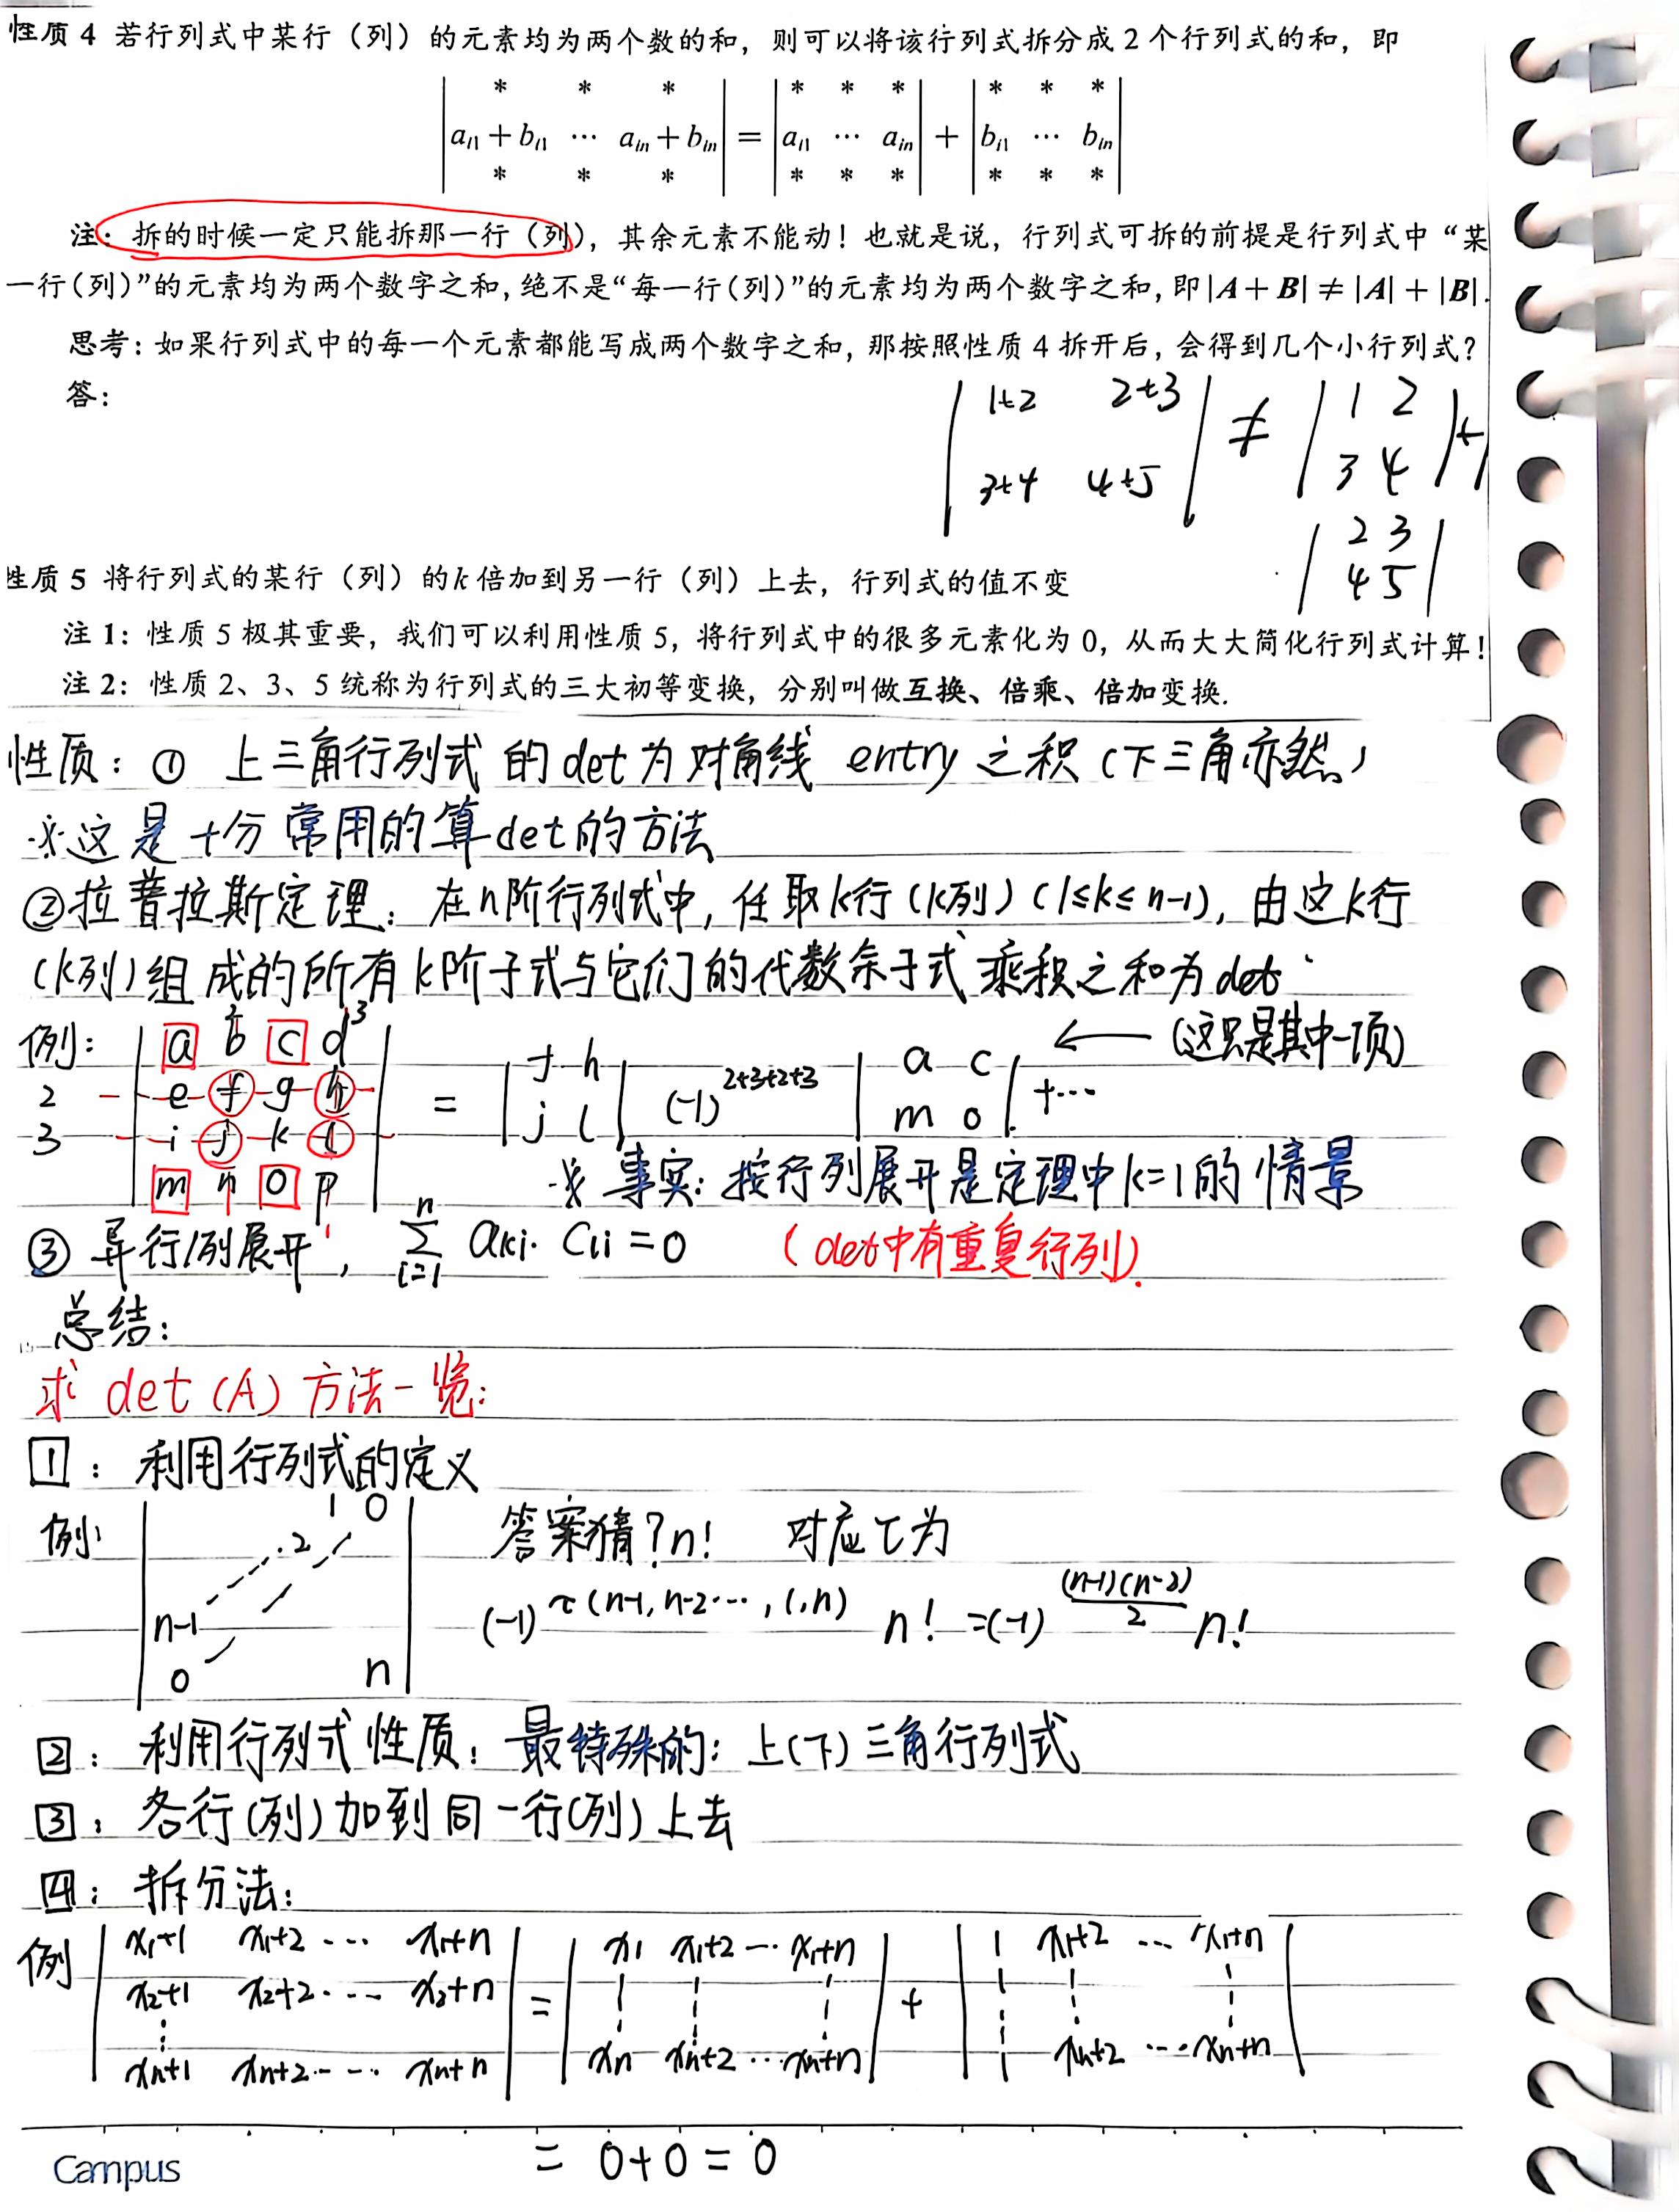 性质 4 若行列式中某行（列）的元素均为两个数的和，则可以将该行列式拆分成 2 个行列式的和，即
| * * * | | * * * | | * * * |
| a_{i1} + b_{i1} ⋯ a_{in} + b_{in} | = | a_{i1} ⋯ a_{in} | + | b_{i1} ⋯ b_{in} |
| * * * | | * * * | | * * * |
注：拆的时候一定只能拆那一行（列），其余元素不能动！也就是说，行列式可拆的前提是行列式中“某
一行(列)”的元素均为两个数字之和，绝不是“每一行(列)”的元素均为两个数字之和，即|A + B| ≠ |A| + |B|.
思考：如果行列式中的每一个元素都能写成两个数字之和，那按照性质 4 拆开后，会得到几个小行列式？
答：
| 1+2 2+3 | ≠ | 1 2 | +
| 3+4 4+5 | | 3 4 |
| 2 3 |
| 4 5 |
性质 5 将行列式的某行（列）的k 倍加到另一行（列）上去，行列式的值不变
注 1：性质 5 极其重要，我们可以利用性质 5，将行列式中的很多元素化为 0，从而大大简化行列式计算！
注 2：性质 2、3、5 统称为行列式的三大初等变换，分别叫做互换、倍乘、倍加变换.
性质：① 上三角行列式 的 det 为 对角线 entry 之积（下三角亦然）
※这是十分常用的算det的方法
②拉普拉斯定理：在n阶行列式中，任取k行（k列）（1≤k≤n-1），由这k行
（k列）组成的所有k阶子式与它们的代数余子式乘积之和为det
例： | a b c d | ← （这只是其中一项）
2 3
2 | e f g h | = | f h | (-1)^{2+3+2+3} | a c | +⋯
3 | i j k l | | j l | | m o |
| m n o p | ※ 事实：按行列展开是定理中k=1的情景
③ 异行/列展开， \sum_{i=1}^{n} a_{ki} · C_{li} = 0 （det中有重复行列）.
总结：
求 det (A) 方法一览：
1：利用行列式的定义
例： | 1 0 | 答案猜？n! 对应τ为
| 2 |
| n-1 | (-1)^{τ(n-1, n-2⋯, 1, n)} n! = (-1)^{\frac{(n-1)(n-2)}{2}} n!
| 0 n |
2：利用行列式性质：最特殊的：上(下)三角行列式
3：各行(列)加到同一行(列)上去
四：拆分法：
例 | x_1+1 x_1+2 ⋯ x_1+n | | x_1 x_1+2 ⋯ x_1+n | | 1 x_1+2 ⋯ x_1+n |
| x_2+1 x_2+2 ⋯ x_2+n | = | ⋮ ⋮ ⋮ | + | ⋮ ⋮ ⋮ |
| x_n+1 x_n+2 ⋯ x_n+n | | x_n x_n+2 ⋯ x_n+n | | 1 x_n+2 ⋯ x_n+n |
= 0+0 = 0
Campus